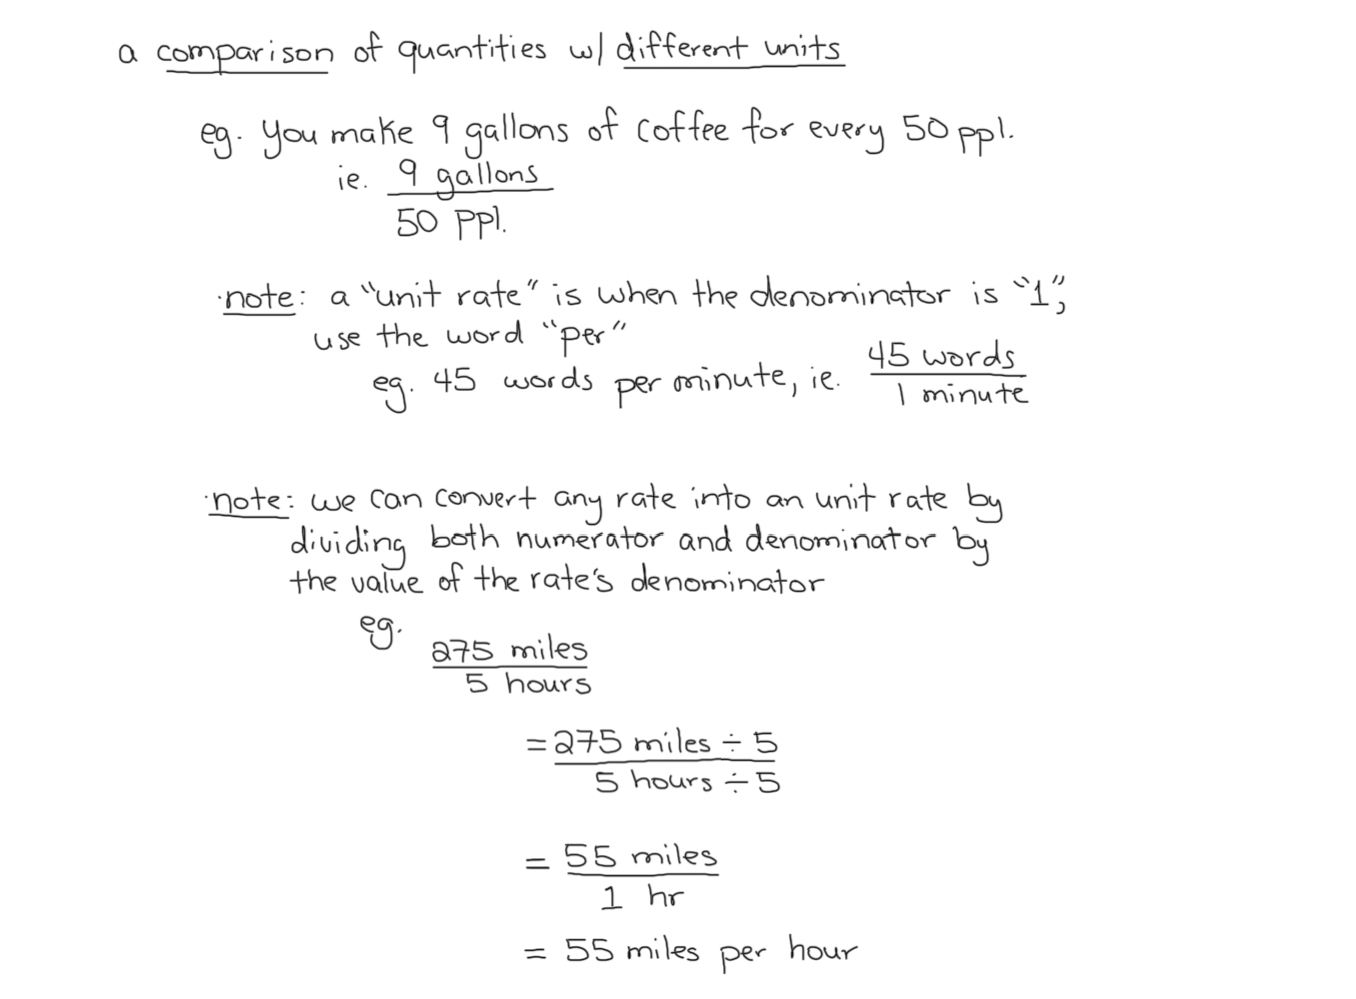 a comparison of quantities w/ different units
eg. You make 9 gallons of coffee for every 50 ppl.
ie. 9 gallons
50 ppl.
note: a "unit rate" is when the denominator is "1",
use the word "per"
eg. 45 words per minute, ie. 45 words
1 minute
note: we can convert any rate into an unit rate by
dividing both numerator and denominator by
the value of the rate's denominator
eg.
275 miles
5 hours
= 275 miles ÷ 5
5 hours ÷ 5
= 55 miles
1 hr
= 55 miles per hour